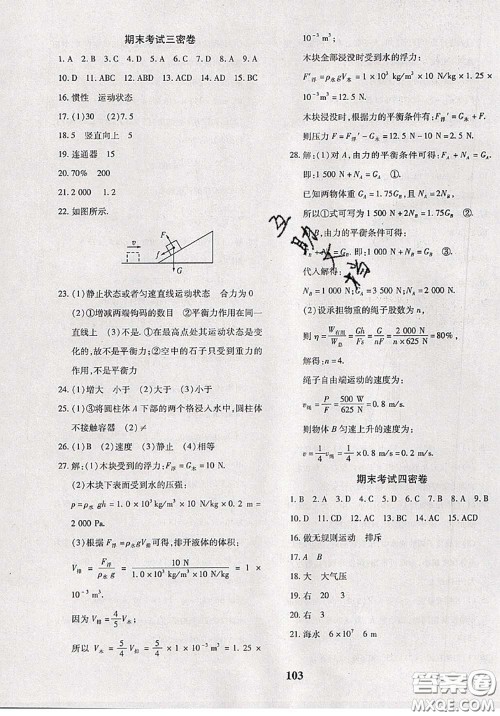 期末考试三密卷
1. A 2. B 3. C 4. D 5. A 6. B 7. D 8. A 9. A
10. D 11. ABC 12. ABC 13. AD 14. AD 15. BC
16. 惯性 运动状态
17. (1)30 (2)7.5
18. 5 竖直向上 5
19. 连通器 15
20. 70% 200
21. 2 000 1.2
22. 如图所示.
v F f G
23. (1)静止状态或者匀速直线运动状态 合力为0
(2)①增大两端钩码的数目 ②两个力作用在同一
直线上 (3)不是.①在最高点处其运动状态是变化
的,故不是平衡力;②空中的石子只受到重力的作
用,所以不是平衡力
24. (1)增大 小于 (2)大于 小于
25. (1)③将圆柱体A下部的两个格浸入水中,圆柱体
不接触容器 ④ (2)> =
26. (1)B (2)速度 (3)静止 (4)相等
27. 解:(1)木块受到的浮力:F浮=G木=10 N.
(2)木块下表面受到水的压强:
p=ρ水 gh=1.0×10³ kg/m³×10 N/kg×0.2 m=
2 000 Pa.
(3)根据 F浮=ρ水gV排,排开液体的体积:
V排=F浮/ρ水g=10 N/1.0×10³ kg/m³×10 N/kg=1×
10⁻³ m³.
因为 V排=4/5 V木,
所以 V木=5/4 V排=5/4×1×10⁻³ m³=1.25×
10⁻³ m³.
木块全部浸没时受到水的浮力:
F′浮=ρ水gV木=1×10³ kg/m³×10 N/kg×1.25×
10⁻³ m³=12.5 N.
木块浸没时,根据力的平衡条件有:F浮′=G木+F,
则压力 F=F浮′-G木=12.5 N-10 N=2.5 N.
28. 解:(1)对A,由力的平衡条件可得:FA+NA=GA.
即:1 500 N+NA=GA ①.
已知两物体重 GA=1.75GB,又 NA=2NB,
所以①式可写为 1 500 N+2NB=1.75GB ②.
对B,由力的平衡条件可得:
FB+NB=GB. 即:1 500 N+NB=GB ③.
代入解得:
NB=1 000 N;GB=2 500 N.
(2)设承担物重的绳子股数为n,
则 η=W有用/W总=Gh/Fs=G/nF=2 000 N/n×625 N=80%,
解得:n=4.
绳子自由端运动的速度为:
v绳=P/F=500 W/625 N=0.8 m/s.
则物体匀速上升的速度为:
v=1/4 v绳=1/4×0.8 m/s=0.2 m/s.
期末考试四密卷
1. B 2. A 3. A 4. D 5. C 6. C 7. B 8. A 9. B
10. D 11. AC 12. BC 13. AC 14. AC 15. ACD
16. 做无规则运动 排斥
17. A B
18. 大 大气压
19. 右 20 3
20. 右 3
21. 海水 6×10⁷ 6 m
103
互助文档
答案圈
MXQE.COM